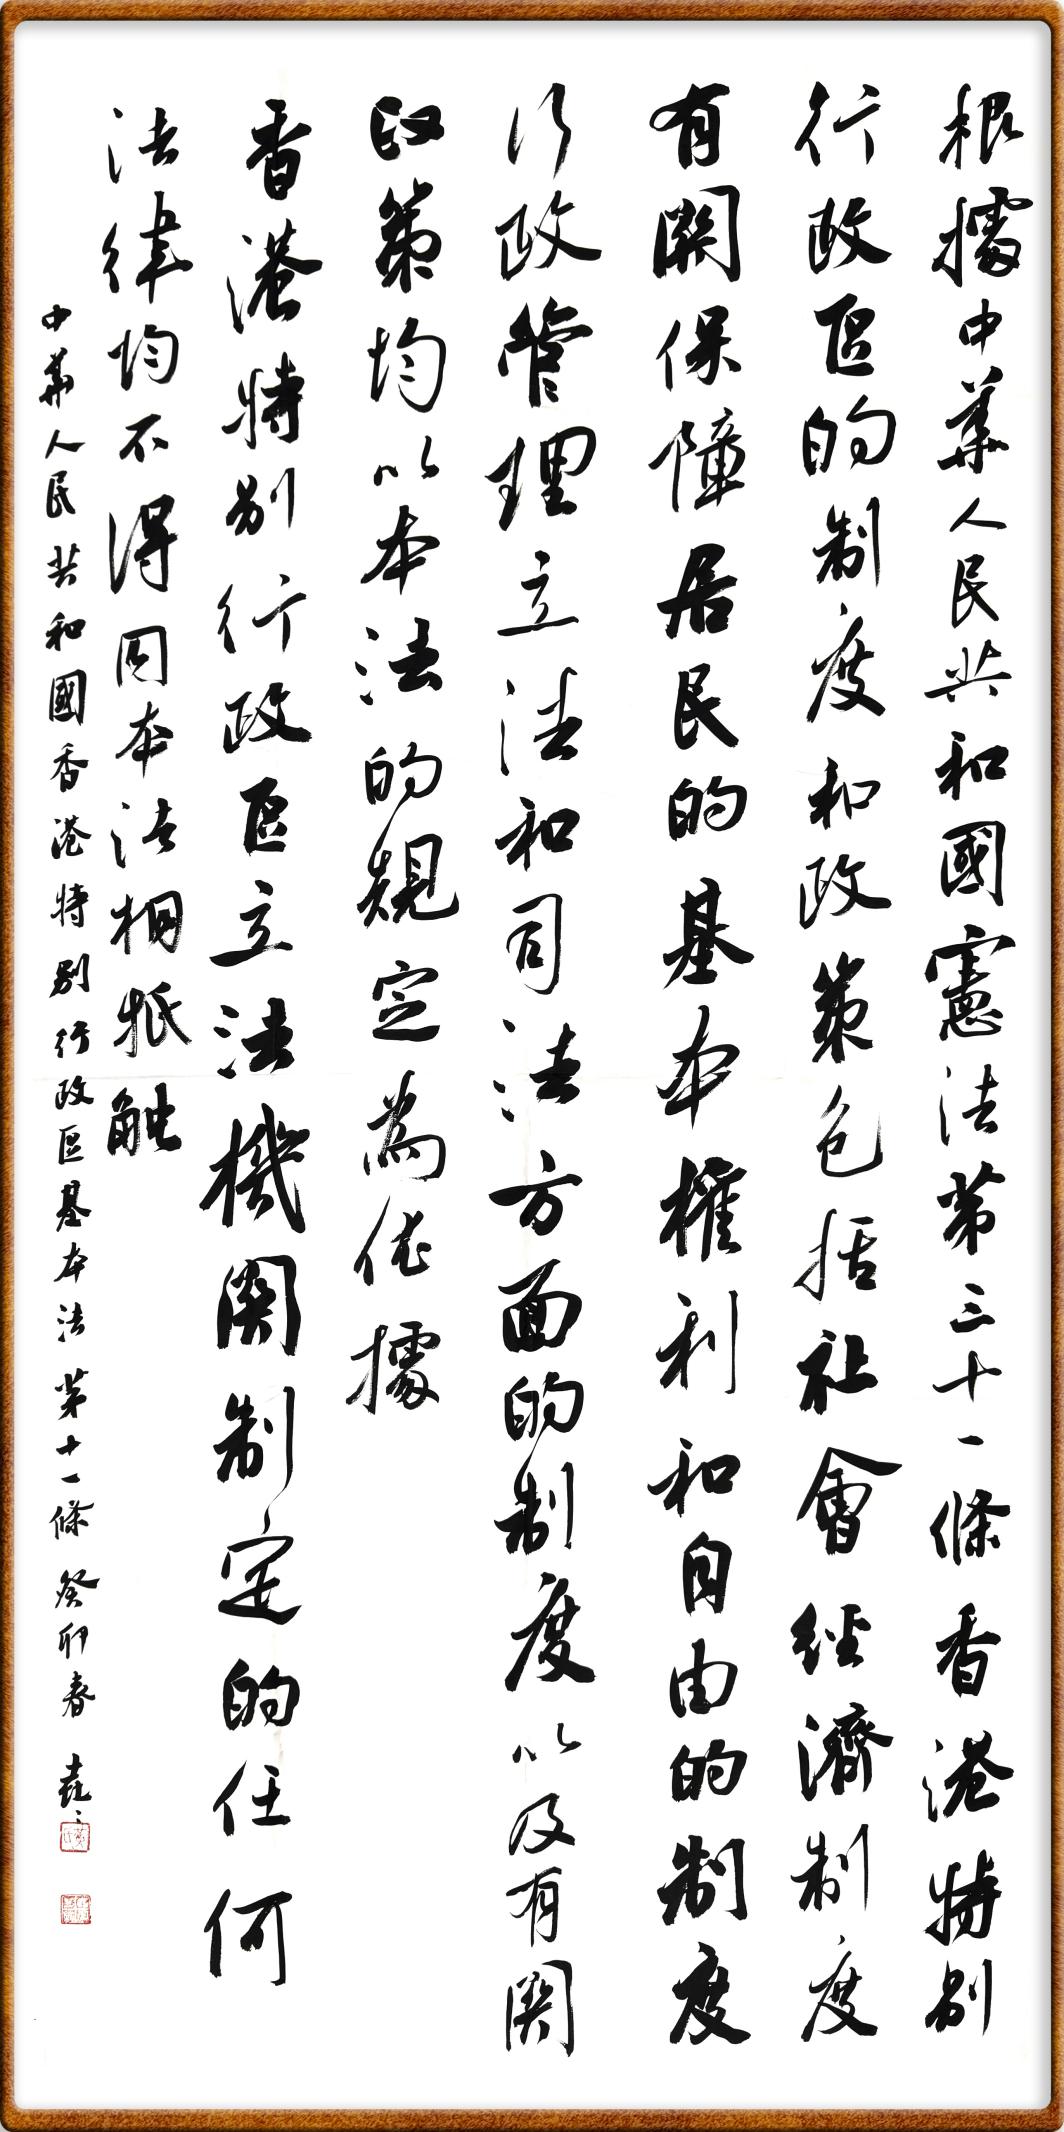 根據中華人民共和國憲法第三十一條香港特別
行政區的制度和政策包括社會經濟制度
有關保障居民的基本權利和自由的制度
行政管理立法和司法方面的制度以及有關
政策均以本法的規定為依據
香港特別行政區立法機關制定的任何
法律均不得同本法相抵觸
中華人民共和國香港特別行政區基本法 第十一條 癸卯春